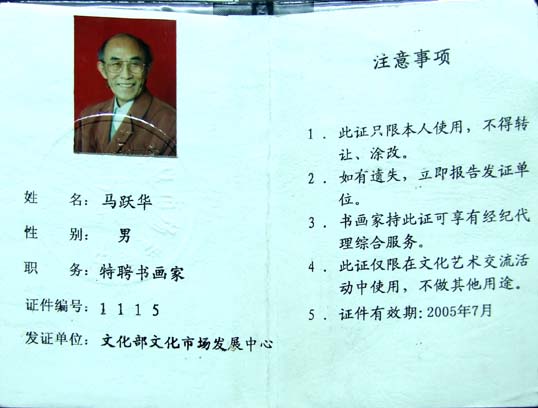 姓　名：马跃华
性　别：男
职　务：特聘书画家
证件编号：1115
发证单位：文化部文化市场发展中心
注意事项
1．此证只限本人使用，不得转
让、涂改。
2．如有遗失，立即报告发证单
位。
3．书画家持此证可享有经纪代
理综合服务。
4．此证仅限在文化艺术交流活
动中使用，不做其他用途。
5．证件有效期：2005年7月